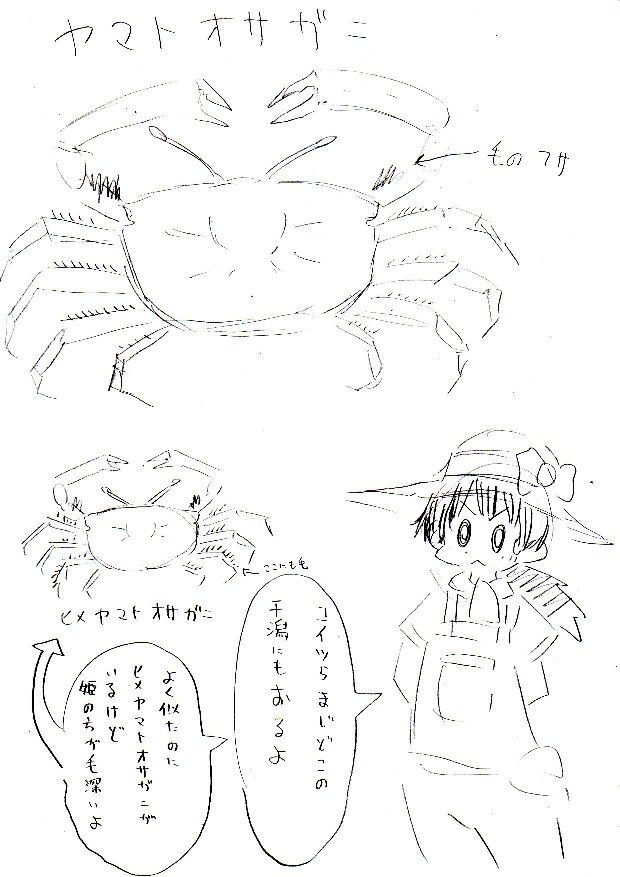 ヤマトオサガニ
毛のフサ
ここにも毛
ヒメヤマトオサガニ
コイツらまじどこの
干潟にもおるよ
よく似たのに
ヒメヤマトオサガニが
いるけど
姫の方が毛深いよ